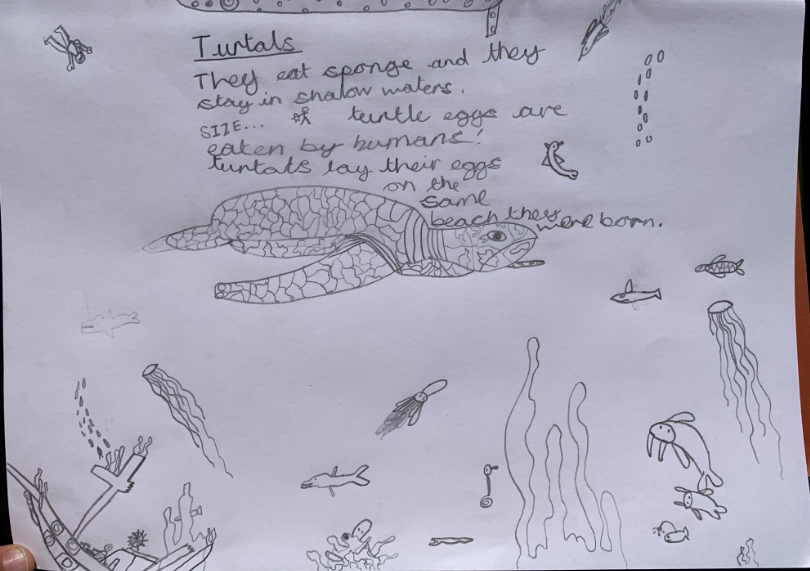 Turtals
They eat sponge and they
stay in shalow waters.
SIZE... turtle eggs are
eaten by humans!
turtals lay their eggs
on the
same
beach they were born.